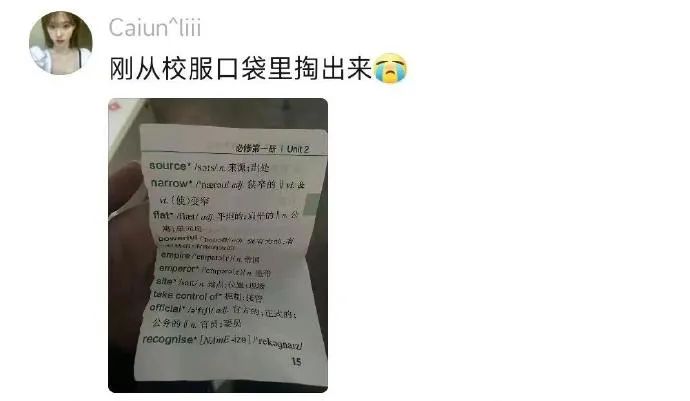 Caiun^liii
刚从校服口袋里掏出来😭
必修第一册 | Unit 2
source* /sɔːs/ n. 来源;出处
narrow* /'nærəʊ/ adj. 狭窄的 ‖ vt. &
vi. (使)变窄
flat* /flæt/ adj. 平坦的;扁平的 ‖ n. 公
寓;单元房
powerful
empire /'empaɪə(r)/ n. 帝国
emperor* /'empərə(r)/ n. 皇帝
site* /saɪt/ n. 地点;位置;现场
take control of* 控制;接管
official* /ə'fɪʃl/ adj. 官方的;正式的;
公务的 ‖ n. 官员;要员
recognise* [NAmE -ize] /'rekəgnaɪz/
15